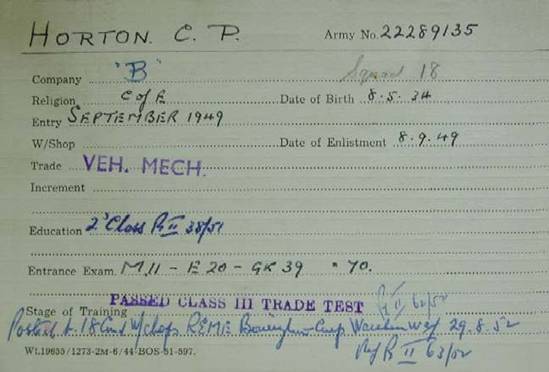 HORTON. C. P. Army No. 22289135
Company "B" Squad 18
Religion C of E Date of Birth 8.5.34
Entry SEPTEMBER 1949
W/Shop Date of Enlistment 8.9.49
Trade VEH. MECH.
Increment
Education 2' Class Pt II 38/51
Entrance Exam. M 11 - E 20 - GK 39 = 70.
Stage of Training PASSED CLASS III TRADE TEST Pt II 62/52
Posted to 18 Cmd W/shops REME Camp 29.8.52
Wt.19635/1273-2M-6/44-BOS-51-597. Pt II 63/52